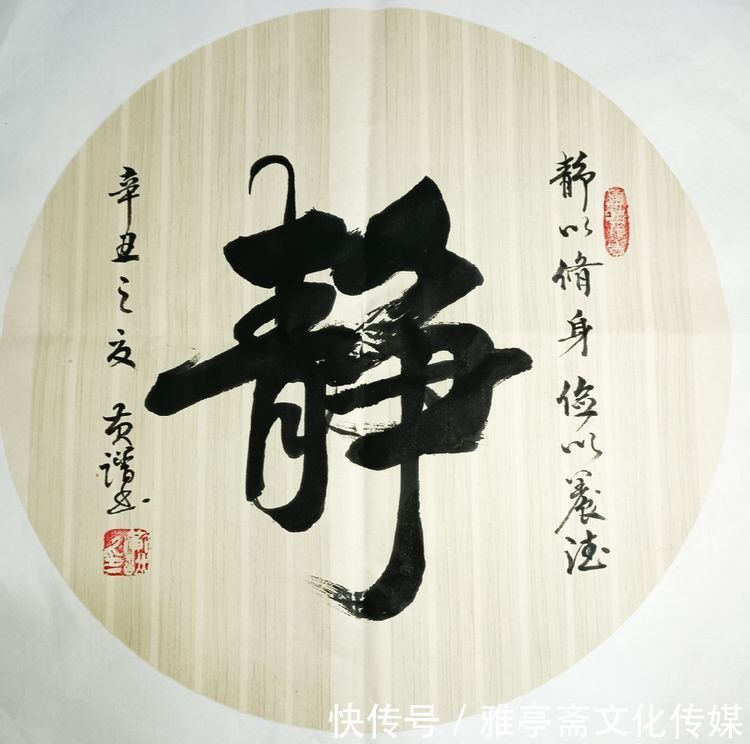 静以脩身俭以养德
静
辛丑之夏
黄谱书
快传号 / 雅亭斋文化传媒